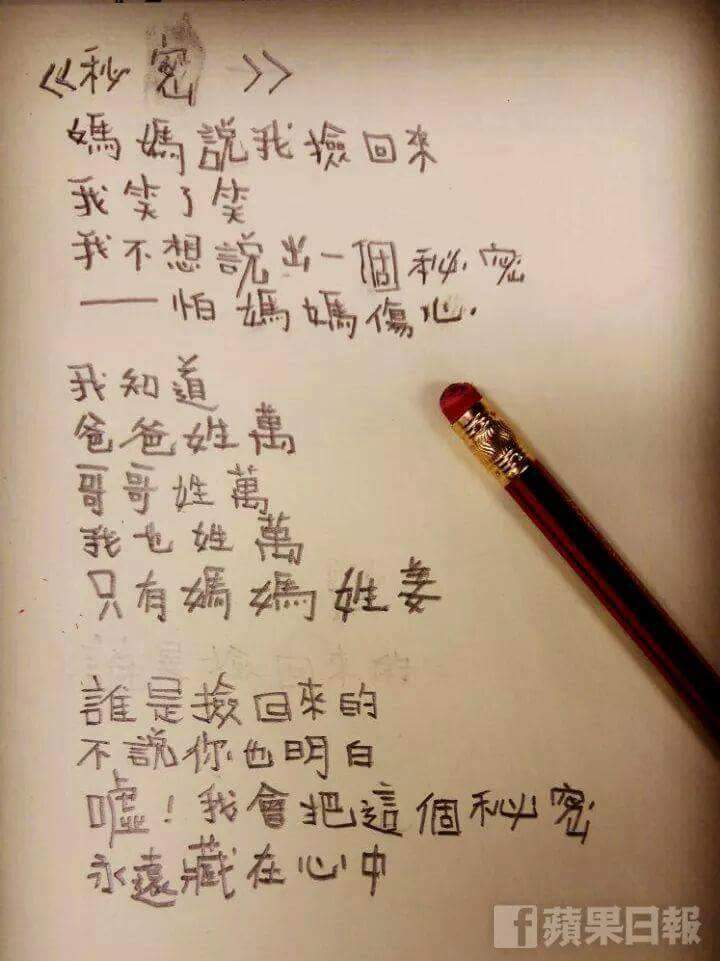 《秘密》
媽媽說我撿回來
我笑了笑
我不想說出一個秘密
——怕媽媽傷心.
我知道
爸爸姓萬
哥哥姓萬
我也姓萬
只有媽媽姓姜
誰是撿回來的
不說你也明白
噓！我會把這個秘密
永遠藏在心中
f 蘋果日報